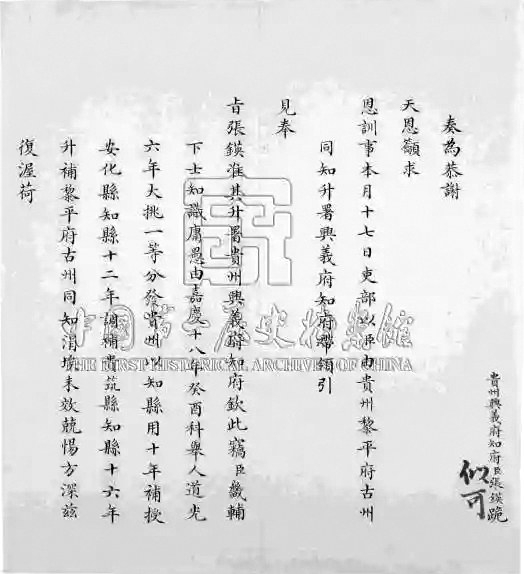 貴州興義府知府臣張鍈跪
似可
奏為恭謝
天恩籲求
恩訓事本月十七日吏部以臣由貴州黎平府古州
同知升署興義府知府帶領引
見奉
旨張鍈准其升署貴州興義府知府欽此竊臣畿輔
下士知識庸愚由嘉慶十八年癸酉科舉人道光
六年大挑一等分發貴州以知縣用十年補授
安化縣知縣十二年調補貴筑縣知縣十六年
升補黎平府古州同知涓埃未效兢惕方深茲
復渥荷
中國第一歷史檔案館
THE FIRST HISTORICAL ARCHIVES OF CHINA